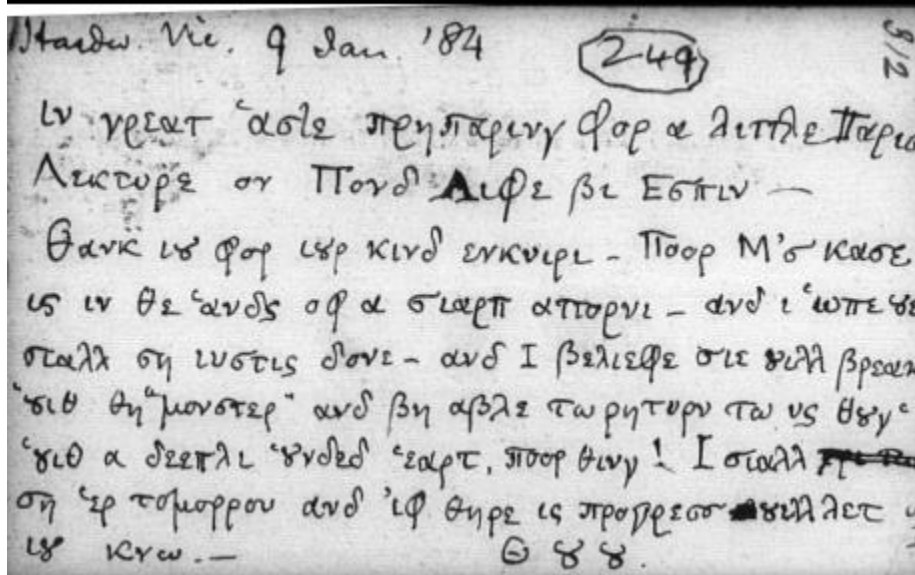 Vic. 9 Jan '84 (249) 9/2
ιν γρεατ ῾αστε πρηπαρινγ φορ α λιττλε Παρις
Λεκτυρε ον Πονδ Λιφε βι Εσπιν —
Θανκ ιȣ φορ ιȣρ κινδ ενκυιρι – Ποορ Μ'ς κασε
ις ιν θε ῾ανδς οφ α σιαρπ αττορνι – ανδ ι ῾ωπε ȣε
σιαλλ ση ιυστις δονε – ανδ Ι βελιεφε σιε ȣιλλ βρεακ
῾ȣιθ θη "μονστερ" ανδ βη αβλε τω ρητυρν τω υς θȣγ῾
῾ȣιθ α δεεπλι ῾ȣνδεδ ῾εαρτ, ποορ θινγ! Ι σιαλλ
ση ῾ερ τομορρου ανδ ᾿ιφ θηρε ις προγρεσσ ȣιλλ λετ
ιȣ κνω. —
Θ ȣ ȣ.